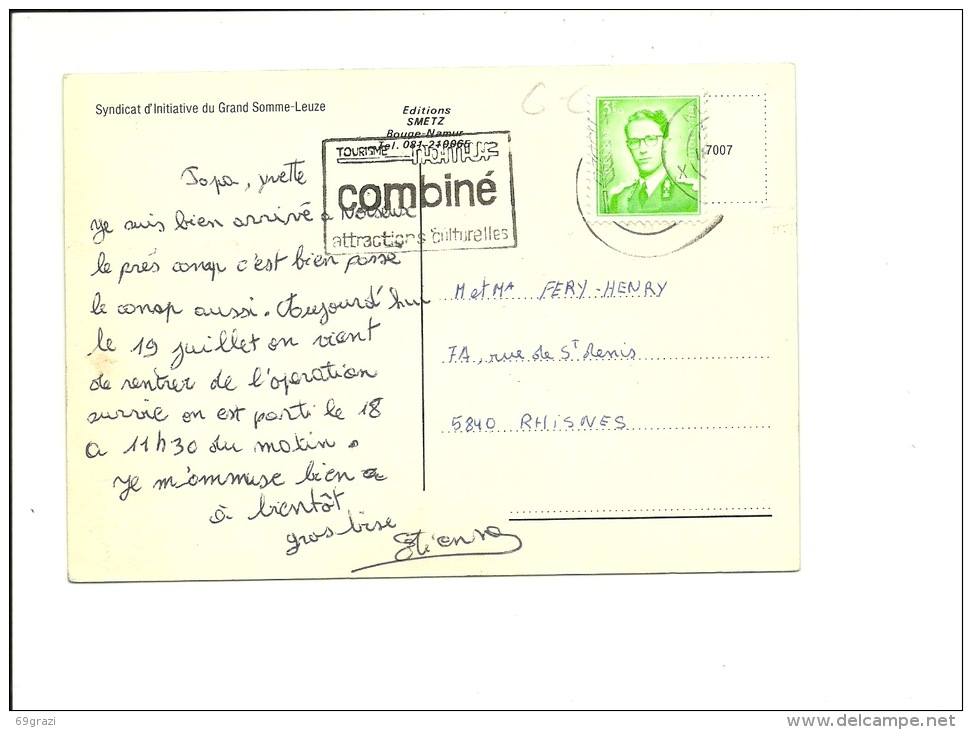 Syndicat d'Initiative du Grand Somme-Leuze
Editions
SMETZ
Bouge-Namur
Tel. 081-210065
TOURISME
combiné
attractions culturelles
3F
7007
Papa, yvette
je suis bien arrivé a Noiseux
le prés camp c'est bien passé
le camp aussi. Aujourd'hui
le 19 juillet on vient
de rentrer de l'operation
survie on est parti le 18
a 11h30 du matin.
Je m'ammuse bien
à bientôt
gros bise
Etienne
M et Me FERY-HENRY
7A, rue de St denis
5840 RHISNES
69grazi
delcampe.net